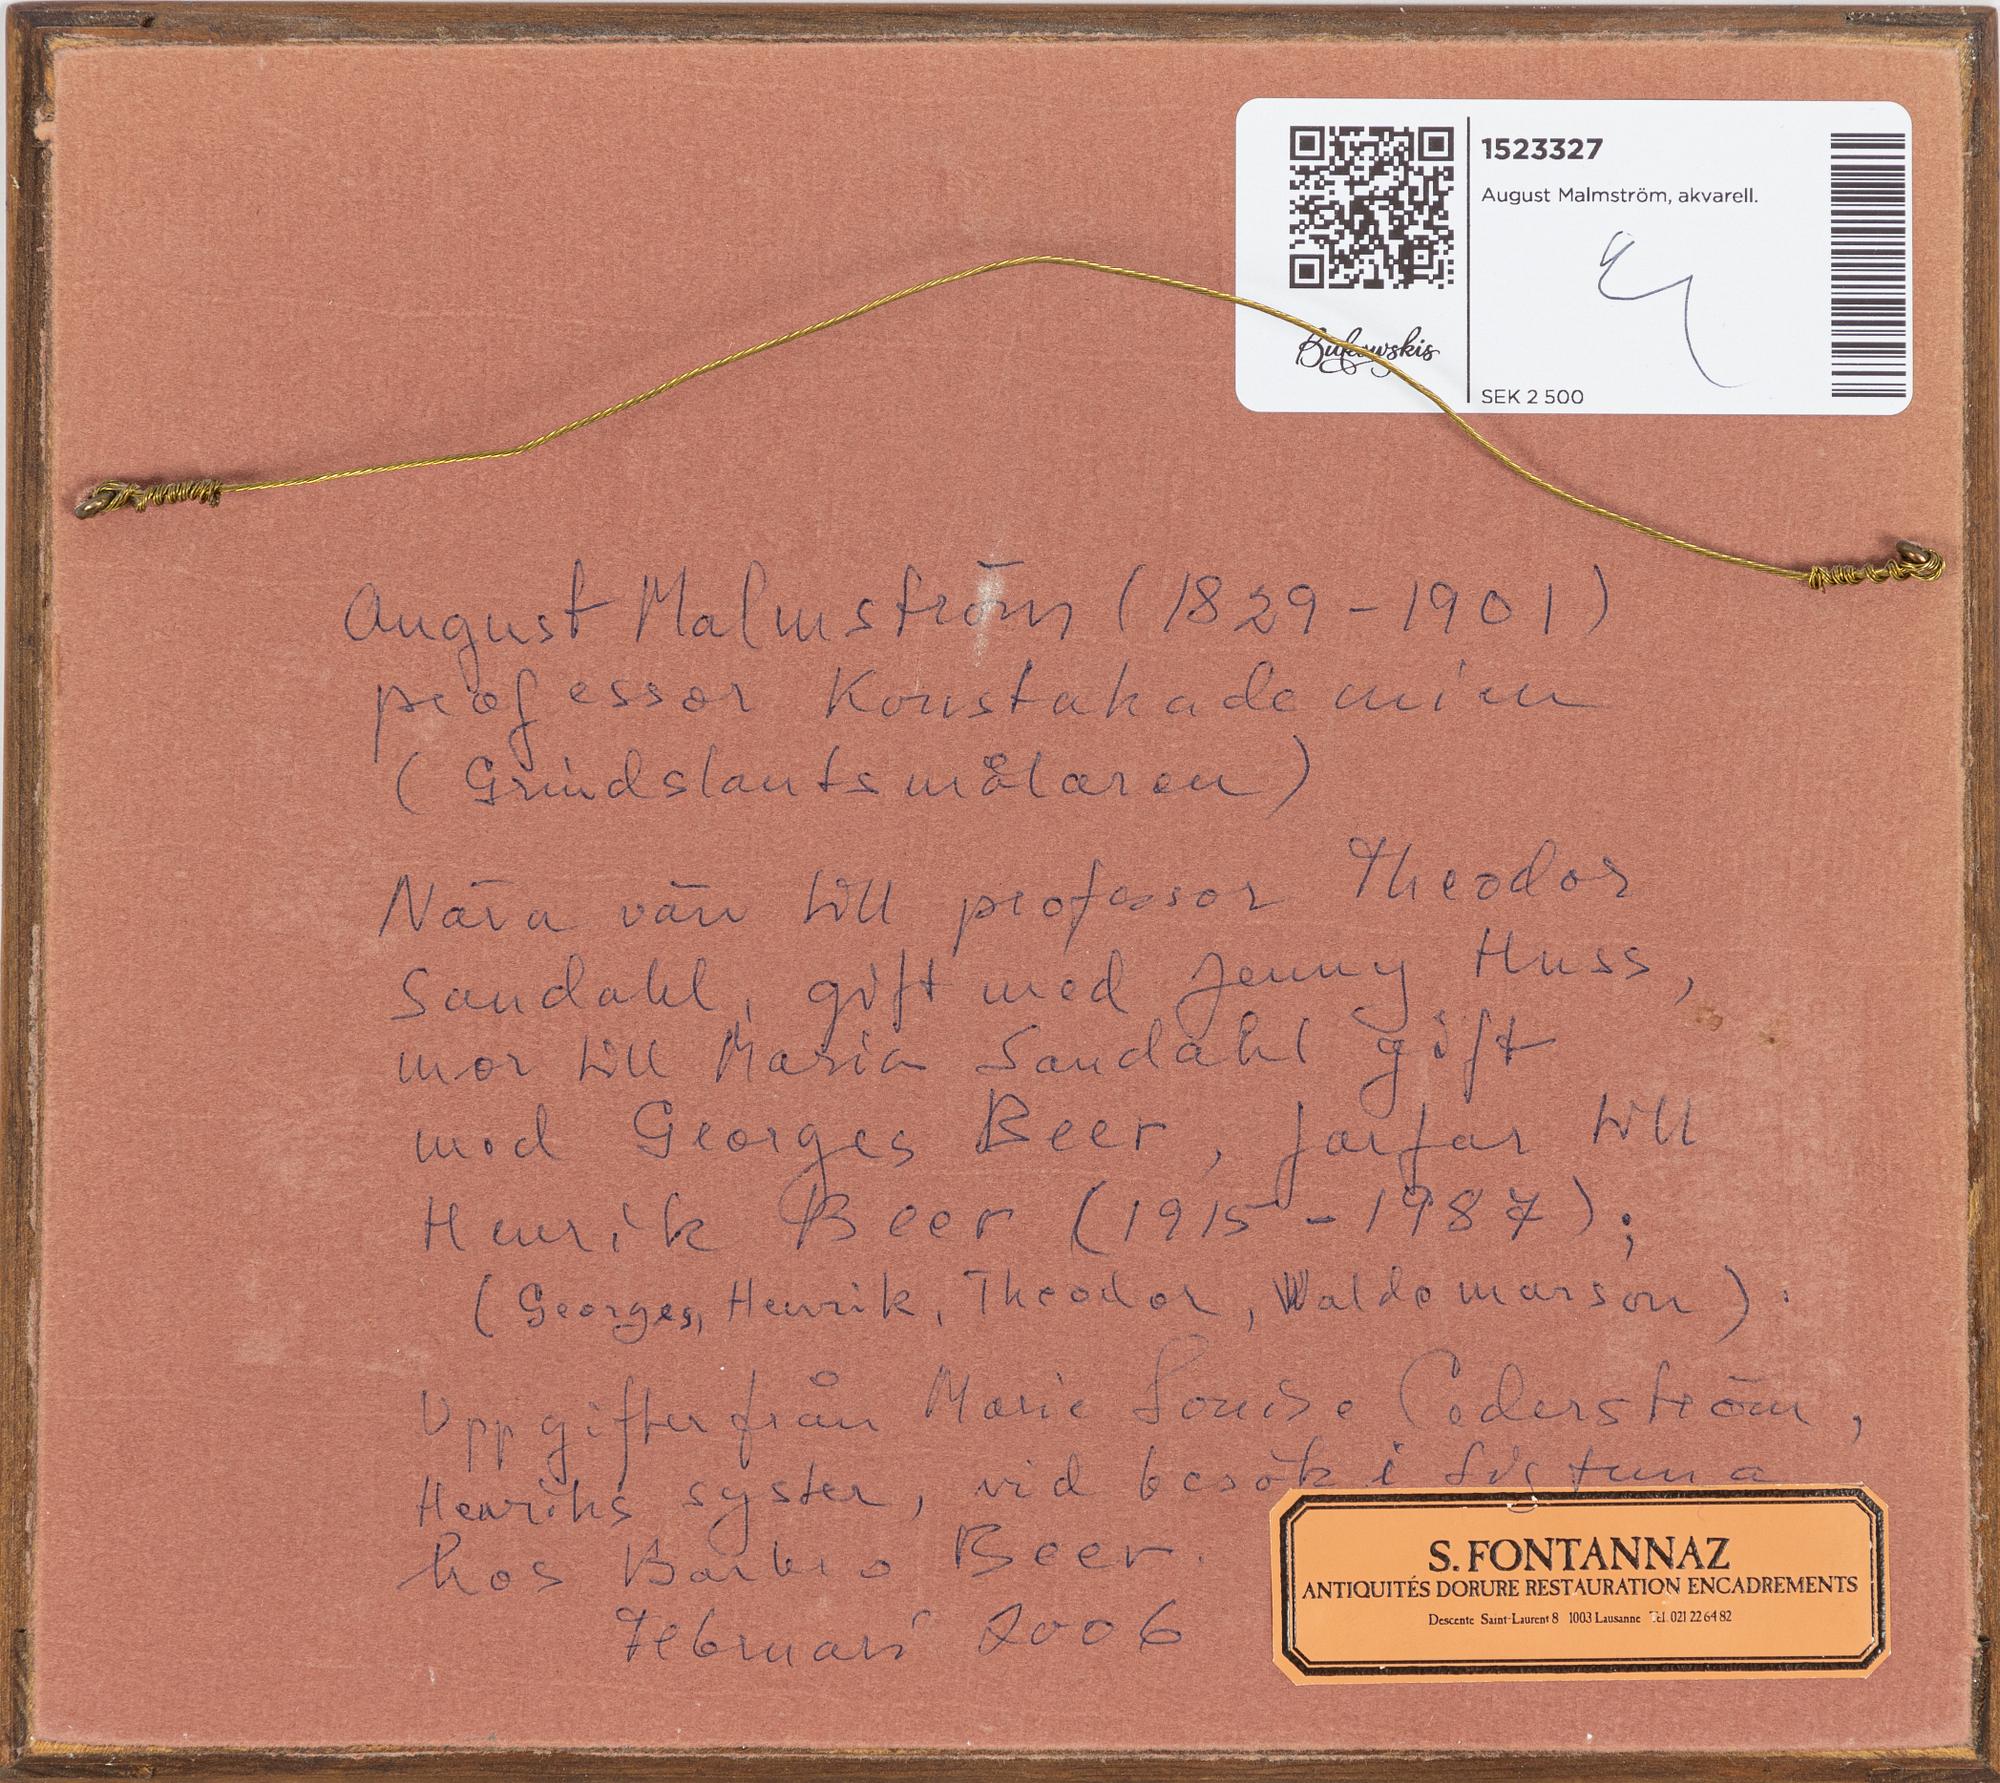 1523327
August Malmström, akvarell.
Bukowskis
SEK 2 500
August Malmström (1829-1901)
professor Konstakademien
(Grindslantsmålaren)
Nära vän till professor Theodor
Sandahl, gift med Jenny Huss,
mor till Maria Sandahl gift
med Georges Beer, farfar till
Henrik Beer (1915-1987);
(Georges, Henrik, Theodor, Waldemarson).
Uppgifter från Marie Louise Cederström,
Henriks syster, vid besök i Sigtuna
hos Barbro Beer.
Februari 2006
S. FONTANNAZ
ANTIQUITÉS DORURE RESTAURATION ENCADREMENTS
Descente Saint-Laurent 8 1003 Lausanne Tél. 021 22 64 82